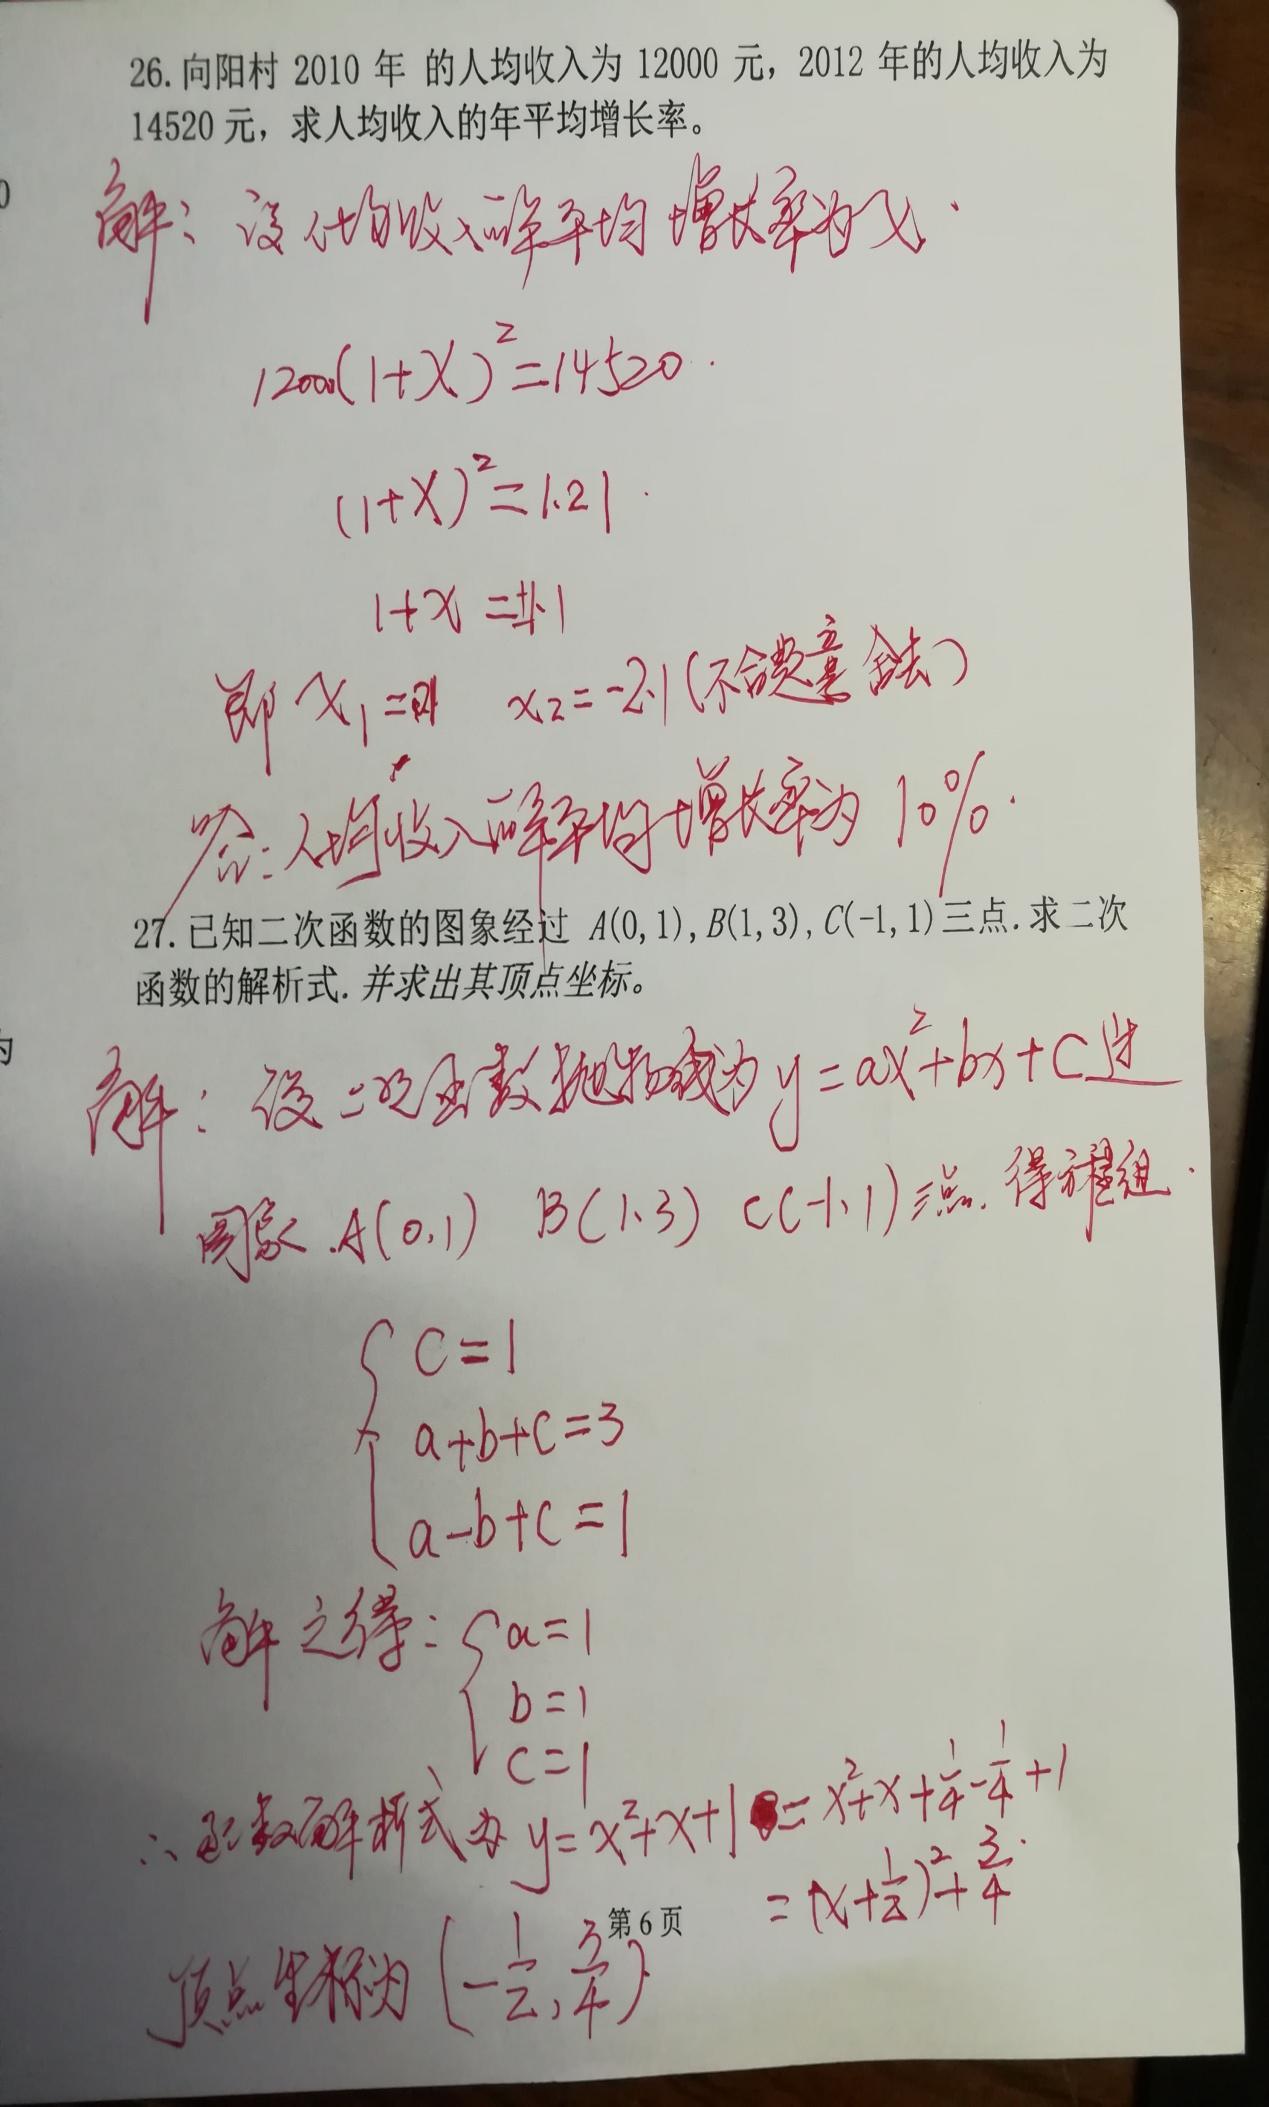 26.向阳村 2010 年 的人均收入为 12000 元，2012 年的人均收入为
14520 元，求人均收入的年平均增长率。
解：设人均收入的年平均增长率为x.
12000(1+x)²=14520.
(1+x)²=1.21.
1+x=±1.1
即 x₁=0.1 x₂=-2.1(不合题意舍去)
答：人均收入的年平均增长率为 10%.
27.已知二次函数的图象经过 A(0,1),B(1,3),C(-1,1)三点.求二次
函数的解析式.并求出其顶点坐标。
解：设二次函数抛物线为y=ax²+bx+c过
图象.A(0,1) B(1,3) C(-1,1)三点.得方程组.
c=1
a+b+c=3
a-b+c=1
解之得：a=1
b=1
c=1
∴函数解析式为y=x²+x+1=x²+x+1/4-1/4+1
=(x+1/2)²+3/4.
第6页
顶点坐标为(-1/2,3/4).